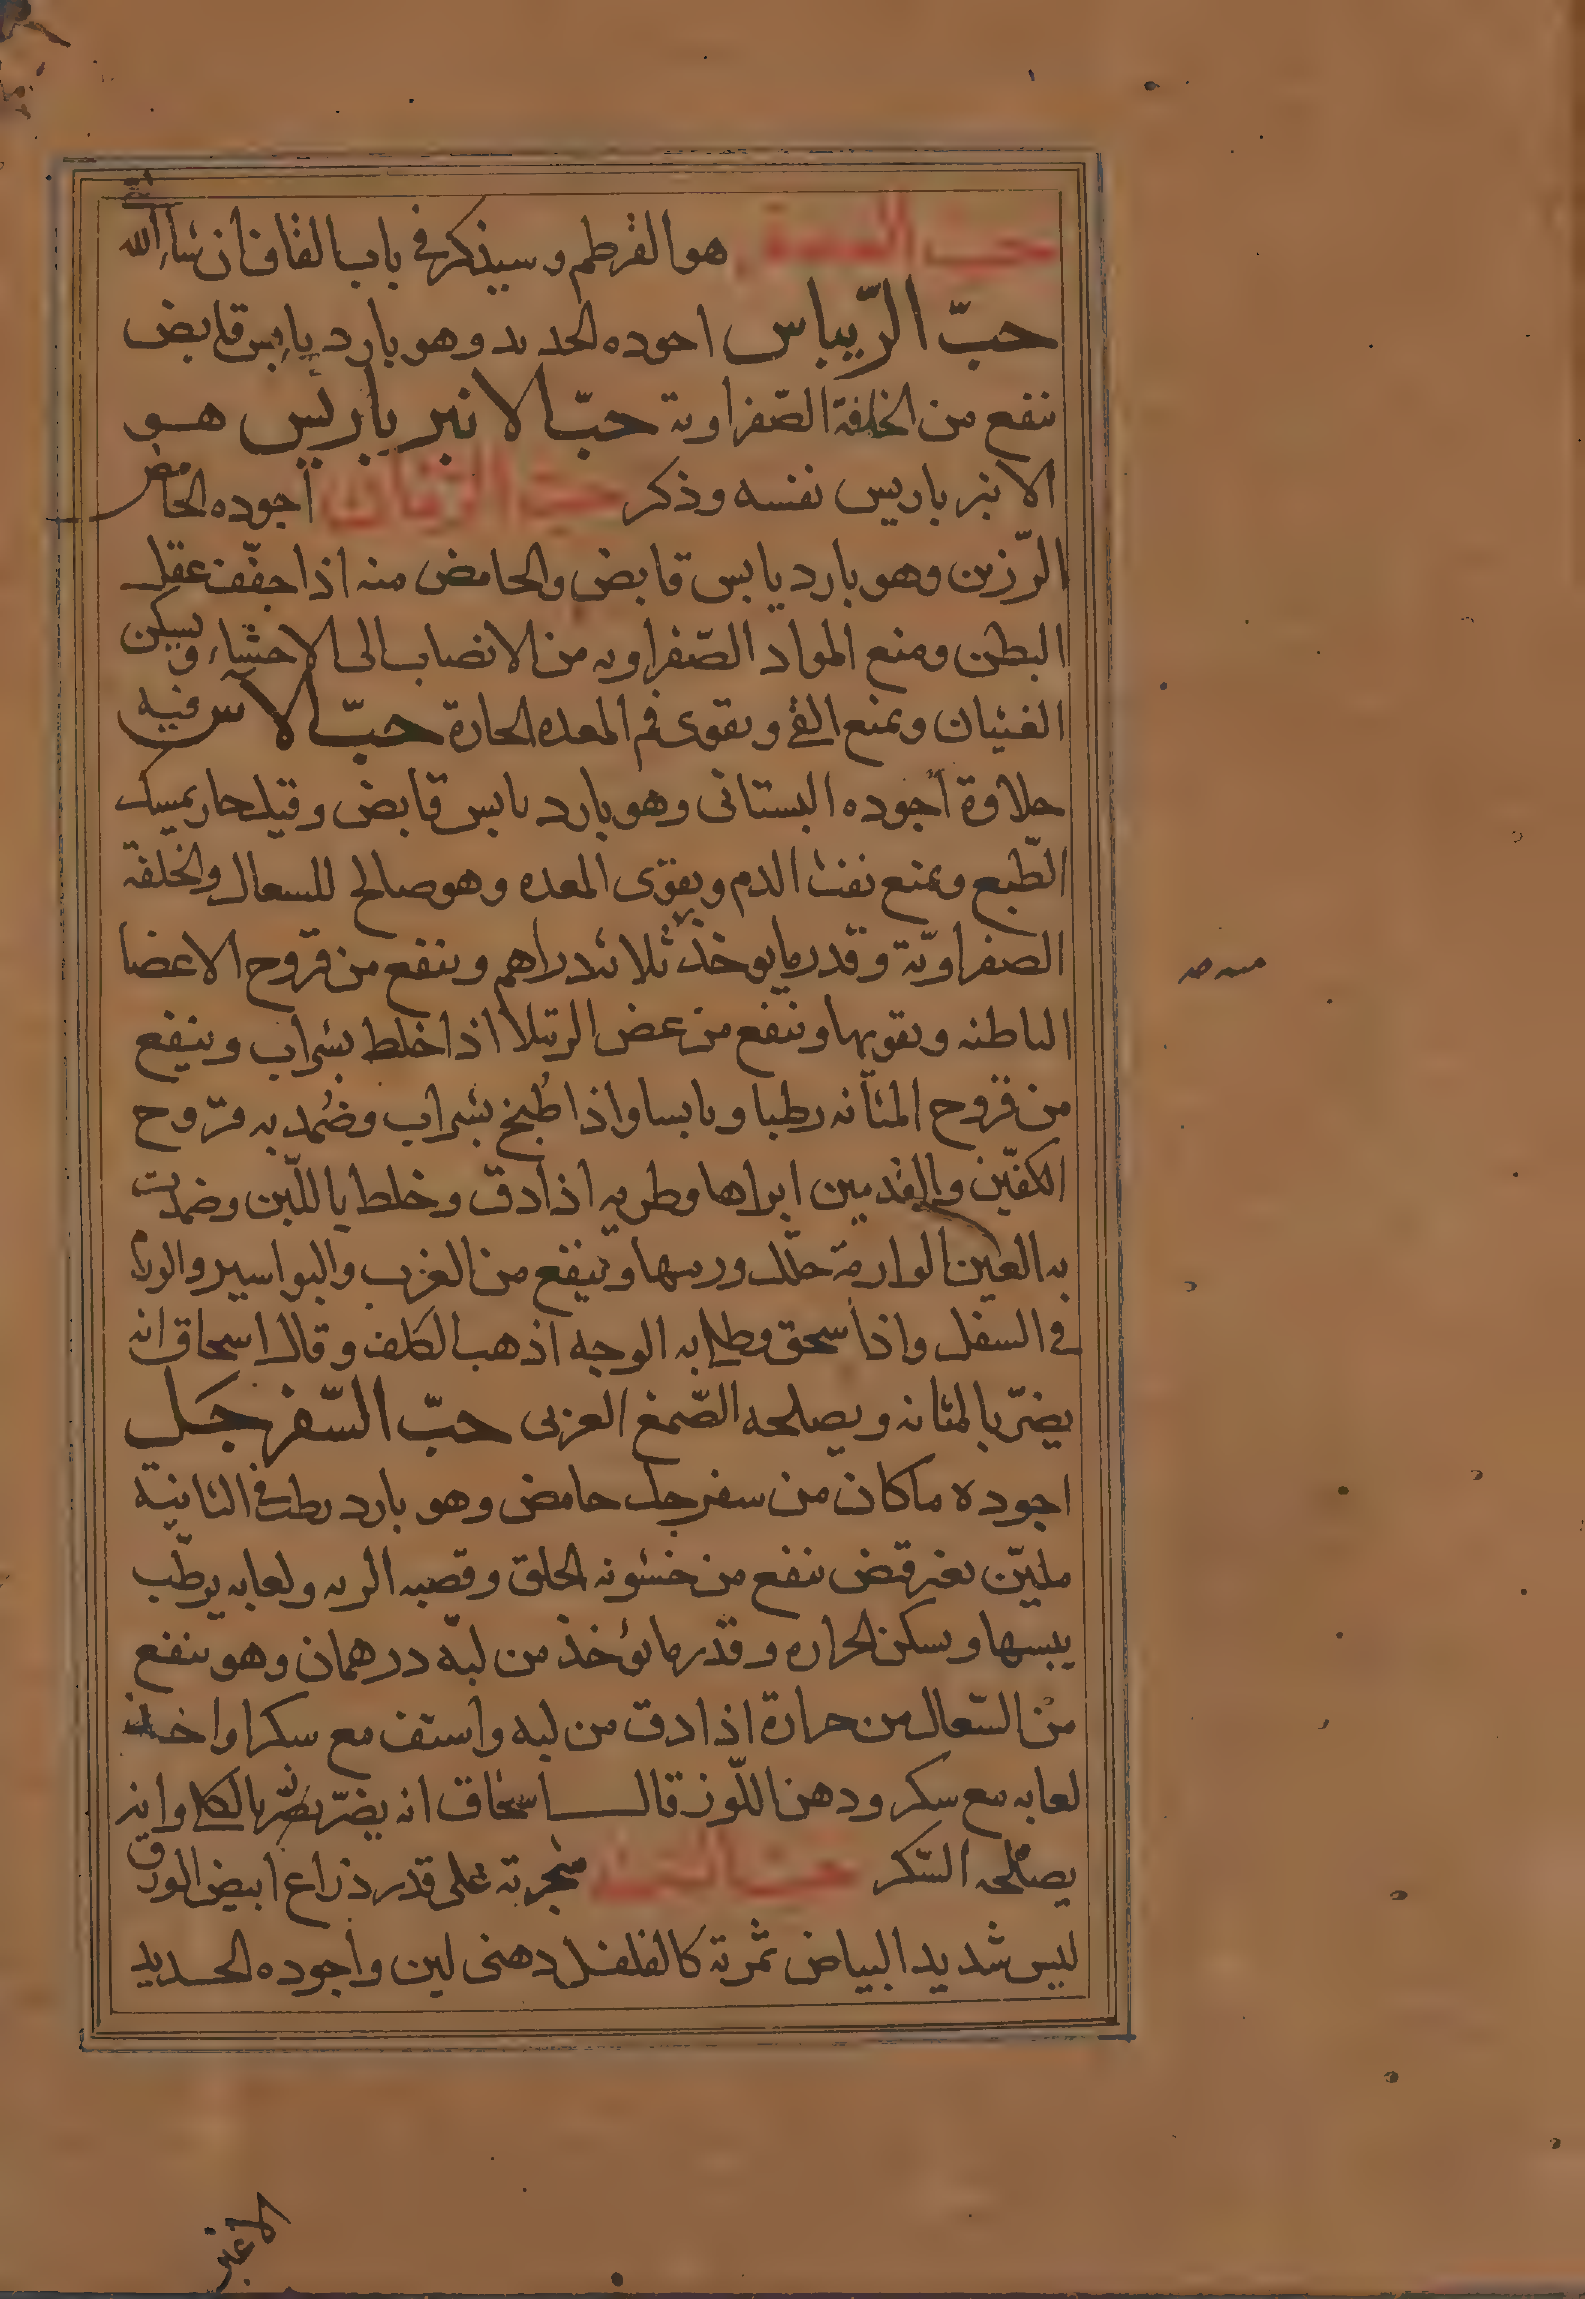 حب العصفر هو القرطم وسيذكر في باب القاف ان شاء الله تع
حبّ الرّيباس اجوده الحديد وهو بارد يابس قابض
ينفع من الخلفة الصّفراوية حبّ الانبرباريس هو
الانبرباريس نفسه وذكر حب الرمان اجوده الحامض
الرّزين وهو بارد يابس قابض والحامض منه اذا جفّف عقل
البطن ومنع المواد الصّفراويه من الانصاب الى الاحشاء ويسكن
الغثيان ويمنع القئ ويقوى فم المعده الحارة حبّ الآس فيه
حلاوة اجوده البستانى وهو بارد يابس قابض وقيل حار يمسك
الطّبع ويمنع نفث الدم ويقوّى المعده وهو صالح للسعال والخلفة
الصفراويّة وقدر ما يوخذ ثلاثة دراهم وينفع من قروح الاعضا
الباطنه ويقويها وينفع من عض الرتيلا اذا خلط بشراب وينفع
من قروح المثانه رطبا ويابسا واذا طُبخ بشراب وضُمد به قروح
الكفّين والقدمين ابراها وطريه اذا دق وخلط باللّبن وضمدت
به العين الوارمة حلّل ورمها وينفع من الغرب والبواسير والورم
فى السفل واذا سحق وطلى به الوجه اذهب الكلف وقال اسحاق انه
يضرّ بالمثانه ويصلحه الصّمغ العربى حبّ السّفرجَل
اجوده ما كان من سفرجل حامض وهو بارد رطب فى الثانية
مليّن بغير قبض ينفع من خشونه الحلق وقصبه الريه ولعابه يرطّب
يبسها ويسكن الحراره وقدر ما يؤخذ من لبّه درهمان وهو ينفع
من السّعال من حرارة اذا دق من لبه واستف مع سكر او اخذ
لعابه مع سكر ودهن اللّوز قال اسحاق انه يضرّ بالكلى وانه
يصلحه السّكر شجرته على قدر ذراع ابيض الورق
ليس شديد البياض ثمرته كالفلفل دهنى لين واجوده الحديد